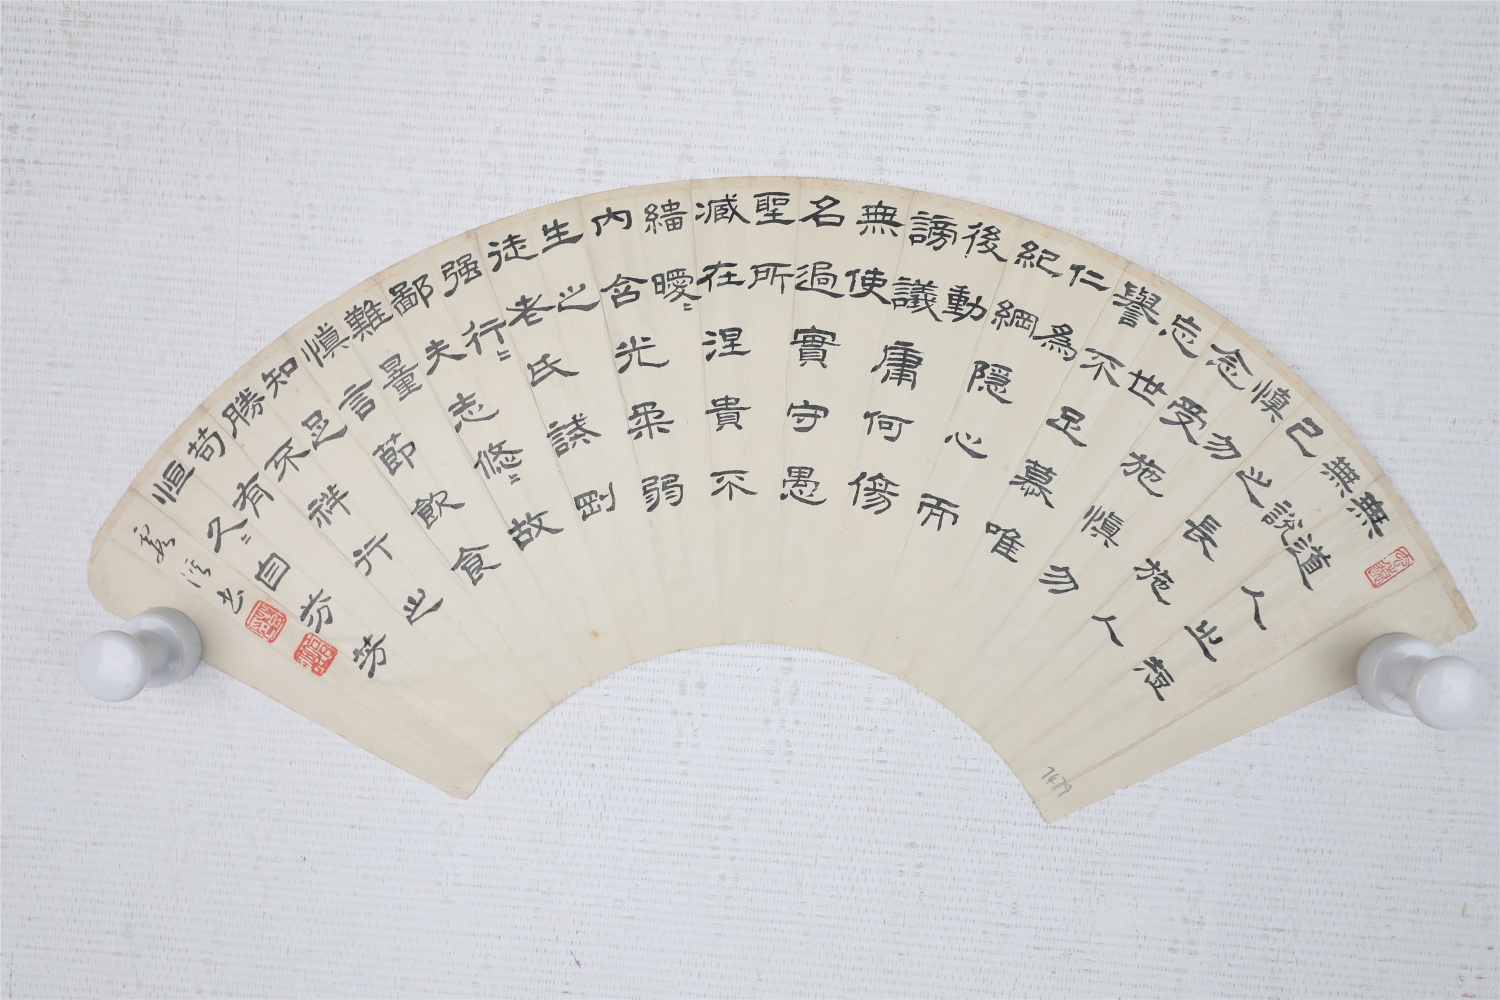 無道人之短
無說
己之長施人
慎勿
念受施慎勿
忘世
譽不足慕唯
仁為
紀綱隱心而
後動
謗議庸何傷
無使
名過實守愚
聖所
臧在涅貴不
緇曖〻
內含光柔弱
生之
徒老氏誡剛
强行〻
鄙夫志悠〻故
難量
慎言節飲食
知足
勝不祥行之
苟有
恒久〻自芬芳
溪書
7479